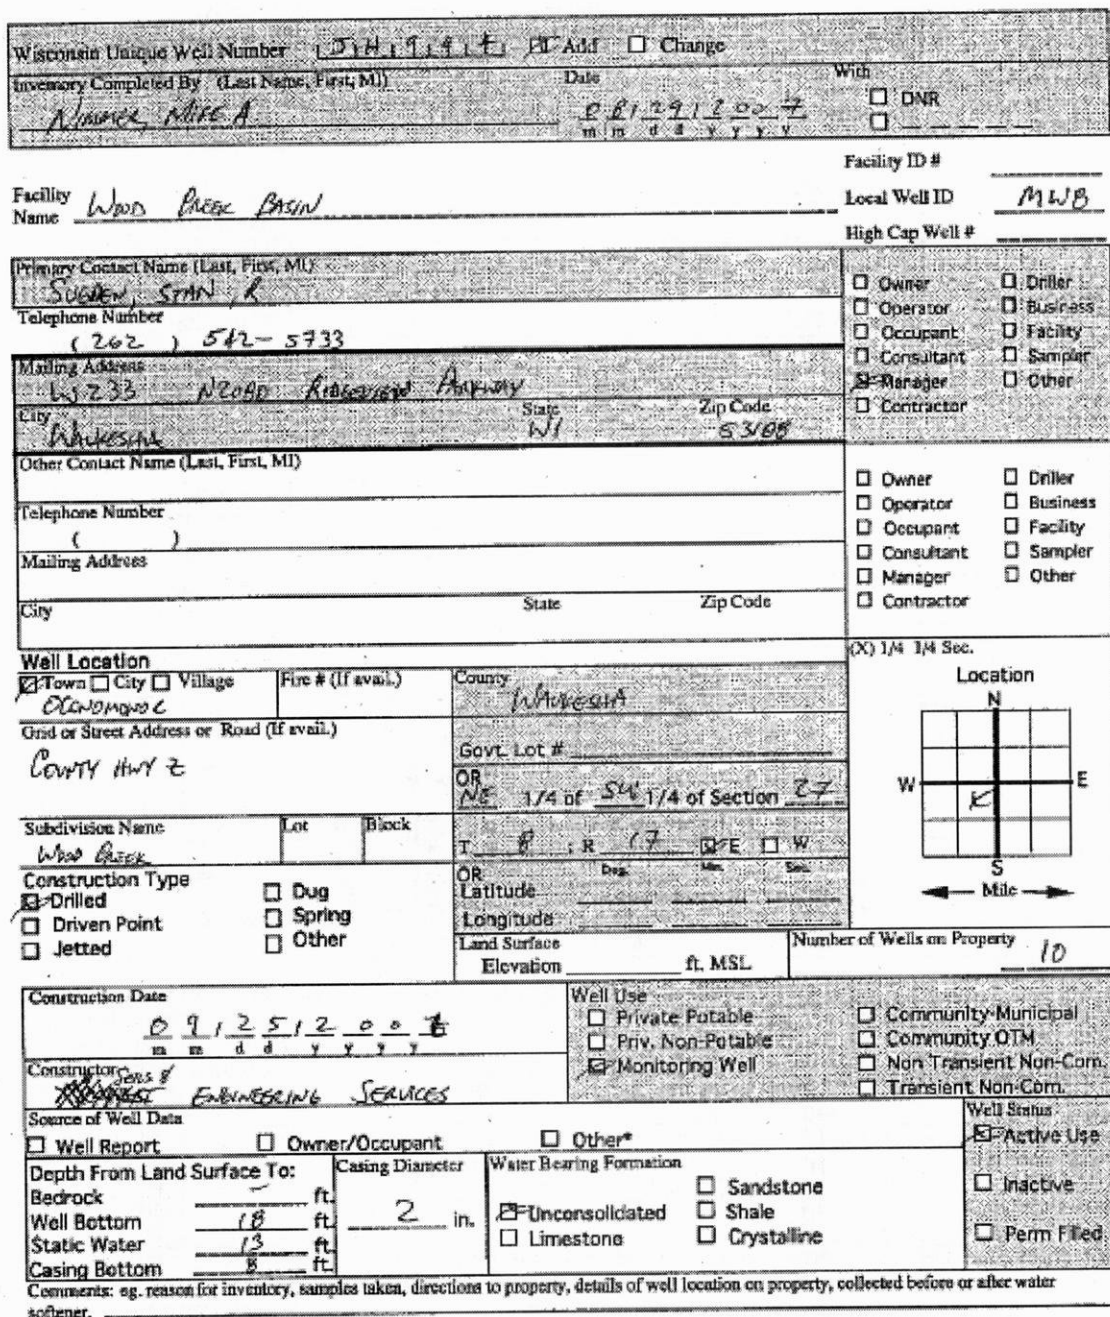 Wisconsin Unique Well Number J H 9 9 Add ☐ Change
Inventory Completed By (Last Name, First, MI) Date With
NIMMER, MIKE A 08 29 2007 ☐ DNR
m m d d y y y y ☐
Facility ID #
Facility Name WOOD CREEK BASIN Local Well ID MW8
High Cap Well #
Primary Contact Name (Last, First, MI)
SUGDEN, STAN R
Telephone Number
(262) 542-5733
☐ Owner ☐ Driller
☐ Operator ☐ Business
☐ Occupant ☐ Facility
☐ Consultant ☐ Sampler
☒ Manager ☐ Other
☐ Contractor
Mailing Address
W233 RIDGEVIEW PARKWAY
City State Zip Code
WAUKESHA WI 53188
Other Contact Name (Last, First, MI)
Telephone Number
( )
Mailing Address
City State Zip Code
☐ Owner ☐ Driller
☐ Operator ☐ Business
☐ Occupant ☐ Facility
☐ Consultant ☐ Sampler
☐ Manager ☐ Other
☐ Contractor
Well Location
☒ Town ☐ City ☐ Village Fire # (If avail.)
OCONOMOWOC
County
WAUKESHA
Grid or Street Address or Road (If avail.)
COUNTY HWY Z
Govt. Lot #
OR
NE 1/4 of SW 1/4 of Section 27
Subdivision Name Lot Block
WOOD CREEK
T 8 ; R 17 ☒ E ☐ W
OR Deg. Min. Sec.
Latitude
Longitude
(X) 1/4 1/4 Sec.
Location
N
W E
S
Mile
Construction Type
☒ Drilled ☐ Dug
☐ Driven Point ☐ Spring
☐ Jetted ☐ Other
Land Surface
Elevation ft. MSL
Number of Wells on Property 10
Construction Date
09 25 200
m m d d y y y y
Constructor
ENGINEERING SERVICES
Well Use
☐ Private Potable ☐ Community-Municipal
☐ Priv. Non-Potable ☐ Community OTM
☒ Monitoring Well ☐ Non Transient Non-Com.
☐ Transient Non-Com.
Source of Well Data
☐ Well Report ☐ Owner/Occupant ☐ Other*
Well Status
☒ Active Use
☐ Inactive
☐ Perm Filled
Depth From Land Surface To:
Bedrock – ft.
Well Bottom 18 ft.
Static Water 13 ft.
Casing Bottom 8 ft.
Casing Diameter
2 in.
Water Bearing Formation
☐ Sandstone
☒ Unconsolidated ☐ Shale
☐ Limestone ☐ Crystalline
Comments: eg. reason for inventory, samples taken, directions to property, details of well location on property, collected before or after water
softener.